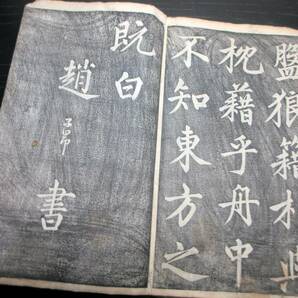 盤狼籍相與
枕藉乎舟中
不知東方之
既白
趙子昂書